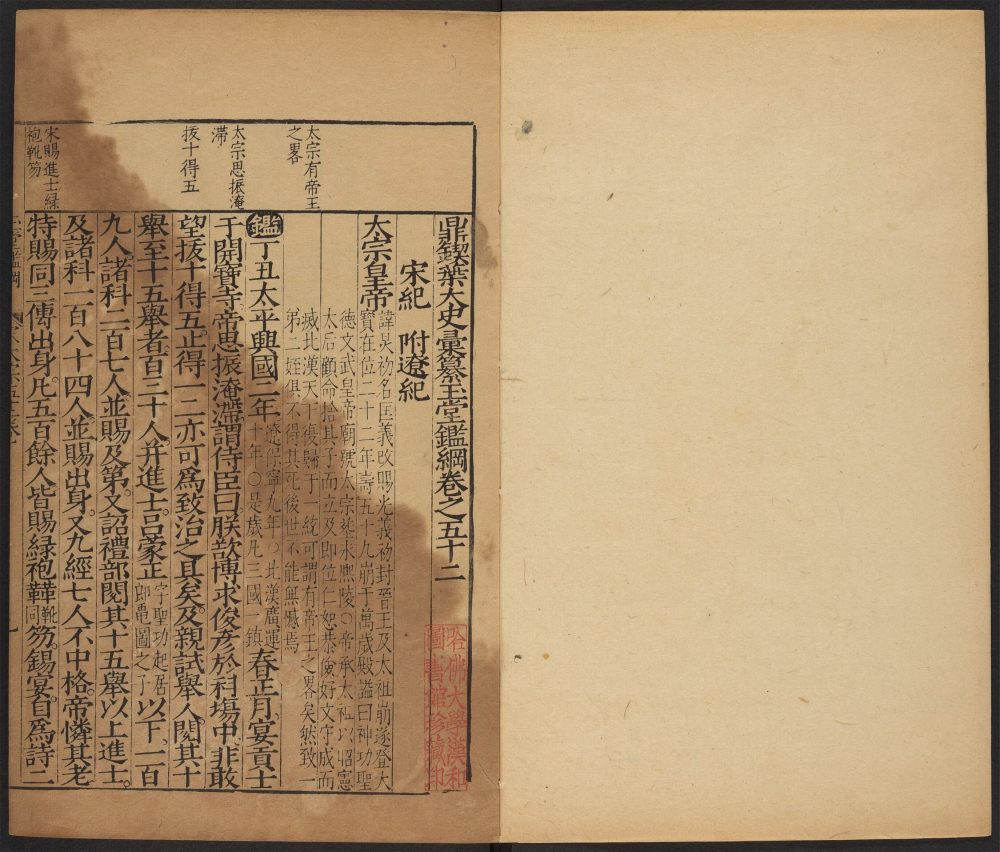 鼎鍥葉太史彙纂玉堂鑑綱卷之五十二
宋紀 附遼紀
太宗皇帝
諱炅初名匡義改賜光義初封晉王及太祖崩遂登大
寶在位二十二年壽五十九崩于萬歲殿謚曰神功聖
德文武皇帝廟號太宗葬永熙陵〇帝承太祖以昭憲
太后顧命捨其子而立及即位仁恕恭儉好文守成而
滅北漢天下復歸于一統可謂有帝王之畧矣然致一
弟二姪俱不得其死後世不能無憾焉
鑑丁丑太平興國二年
遼保寧九年〇北漢廣運
十年〇是歲凡三國一鎮
春正月宴貢士
于開寶寺帝思振淹滯謂侍臣曰朕欲博求俊彥於科場中非敢
望拔十得五止得一二亦可爲致治之具矣及親試舉人閱其十
舉至十五舉者百三十人并進士呂蒙正
字聖功起居
郎龜圖之子
以下一百
九人諸科二百七人並賜及第又詔禮部閱其十五舉以上進士
及諸科一百八十四人並賜出身又九經七人不中格帝憐其老
特賜同三傳出身凡五百餘人皆賜緑袍鞾
靴
同
笏錫宴自爲詩二
太宗有帝王
之畧
太宗思振淹
滯
拔十得五
宋賜進士緑
袍靴笏
哈佛大學漢和
圖書館珍藏印